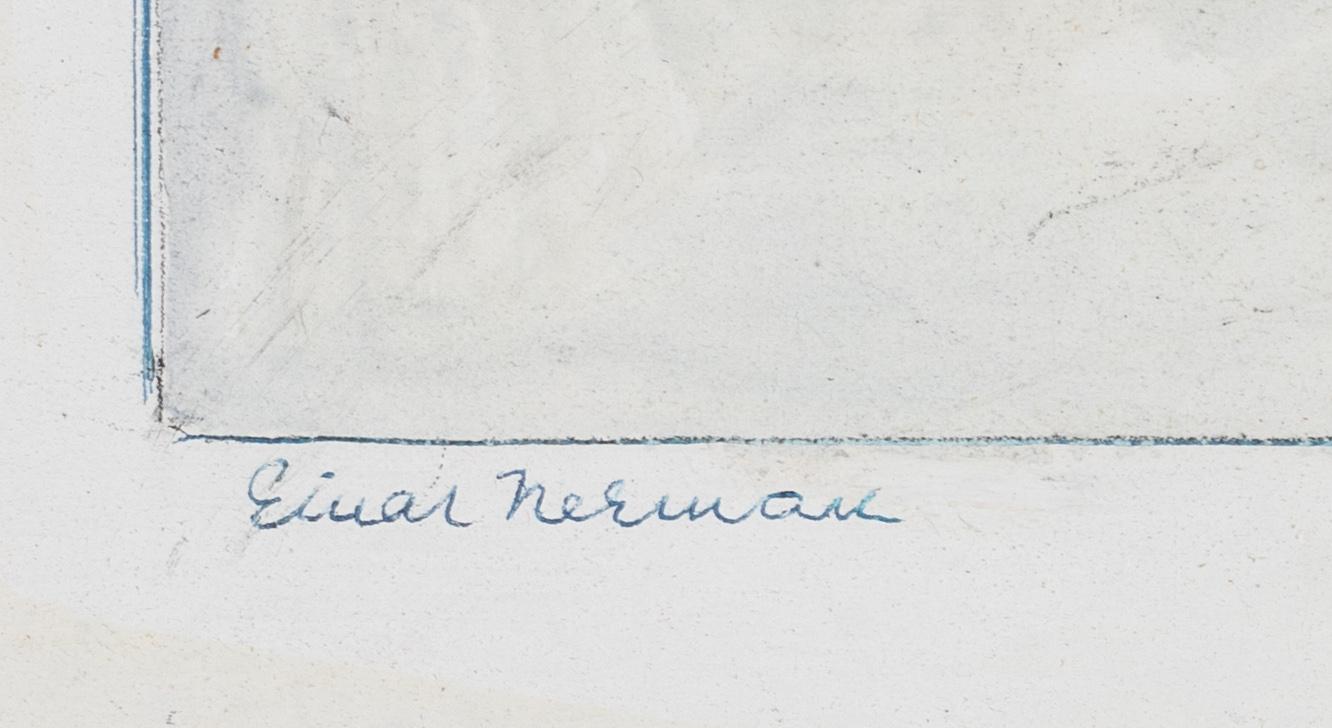 Einar Nerman